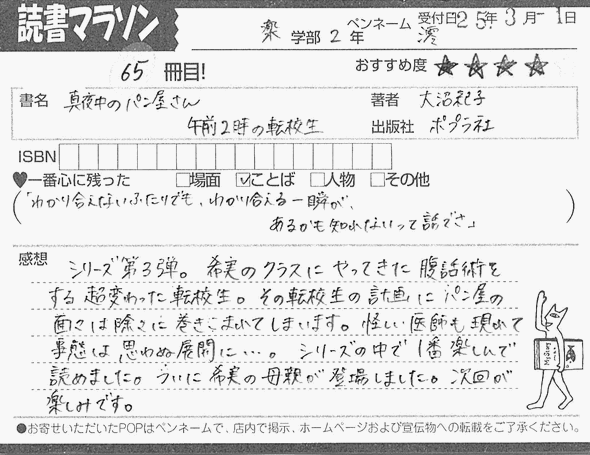 読書マラソン
薬 学部 2 年 ペンネーム 澪 受付日 25年 3月 1日
65 冊目! おすすめ度 ★ ★ ★ ★
書名 真夜中のパン屋さん 著者 大沼紀子
午前2時の転校生 出版社 ポプラ社
ISBN
♥一番心に残った □場面 ☑ことば □人物 □その他
(「わかり合えないふたりでも、わかり合える一瞬が、
あるかも知れないって話でさ」)
感想 シリーズ第3弾。希実のクラスにやってきた腹話術を
する超変わった転校生。その転校生の計画にパン屋の
面々は除々に巻きこまれてしまいます。怪しい医師も現れて
事態は思わぬ展開に…。シリーズの中で1番楽しんで
読めました。ついに希実の母親が登場しました。次回が
楽しみです。
●お寄せいただいたPOPはペンネームで、店内で掲示、ホームページおよび宣伝物への転載をご了承ください。